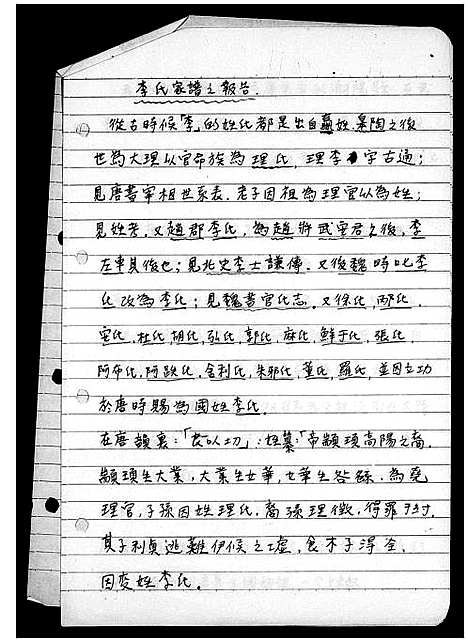 李氏家譜之報告.
從古時候李的姓氏都是出自嬴姓.皋陶之後
世為大理以官命族為理氏,理李字古通;
見唐書宰相世系表.老子因祖為理官以為姓;
見姓考.又趙郡李氏,為趙將武安君之後,李
左車其後也;見北史李士謙傳.又後魏時叱李
氏改為李氏;見魏書官氏志.又徐氏,邴氏.
安氏,杜氏,胡氏,弘氏,郭氏,麻氏,鮮于氏,張氏.
阿布氏,阿跌氏,舍利氏,朱邪氏,董氏,羅氏,並因立功
於唐時賜為國姓李氏.
在唐韻裏:「以功」:姓纂:「帝顓頊高陽之裔.
顓頊生大業,大業生女華,女華生咎繇,為堯
理官,子孫因姓理氏,裔孫理徵,得罪于紂.
其子利貞逃難伊候之墟,食木子得全.
因变姓李氏.